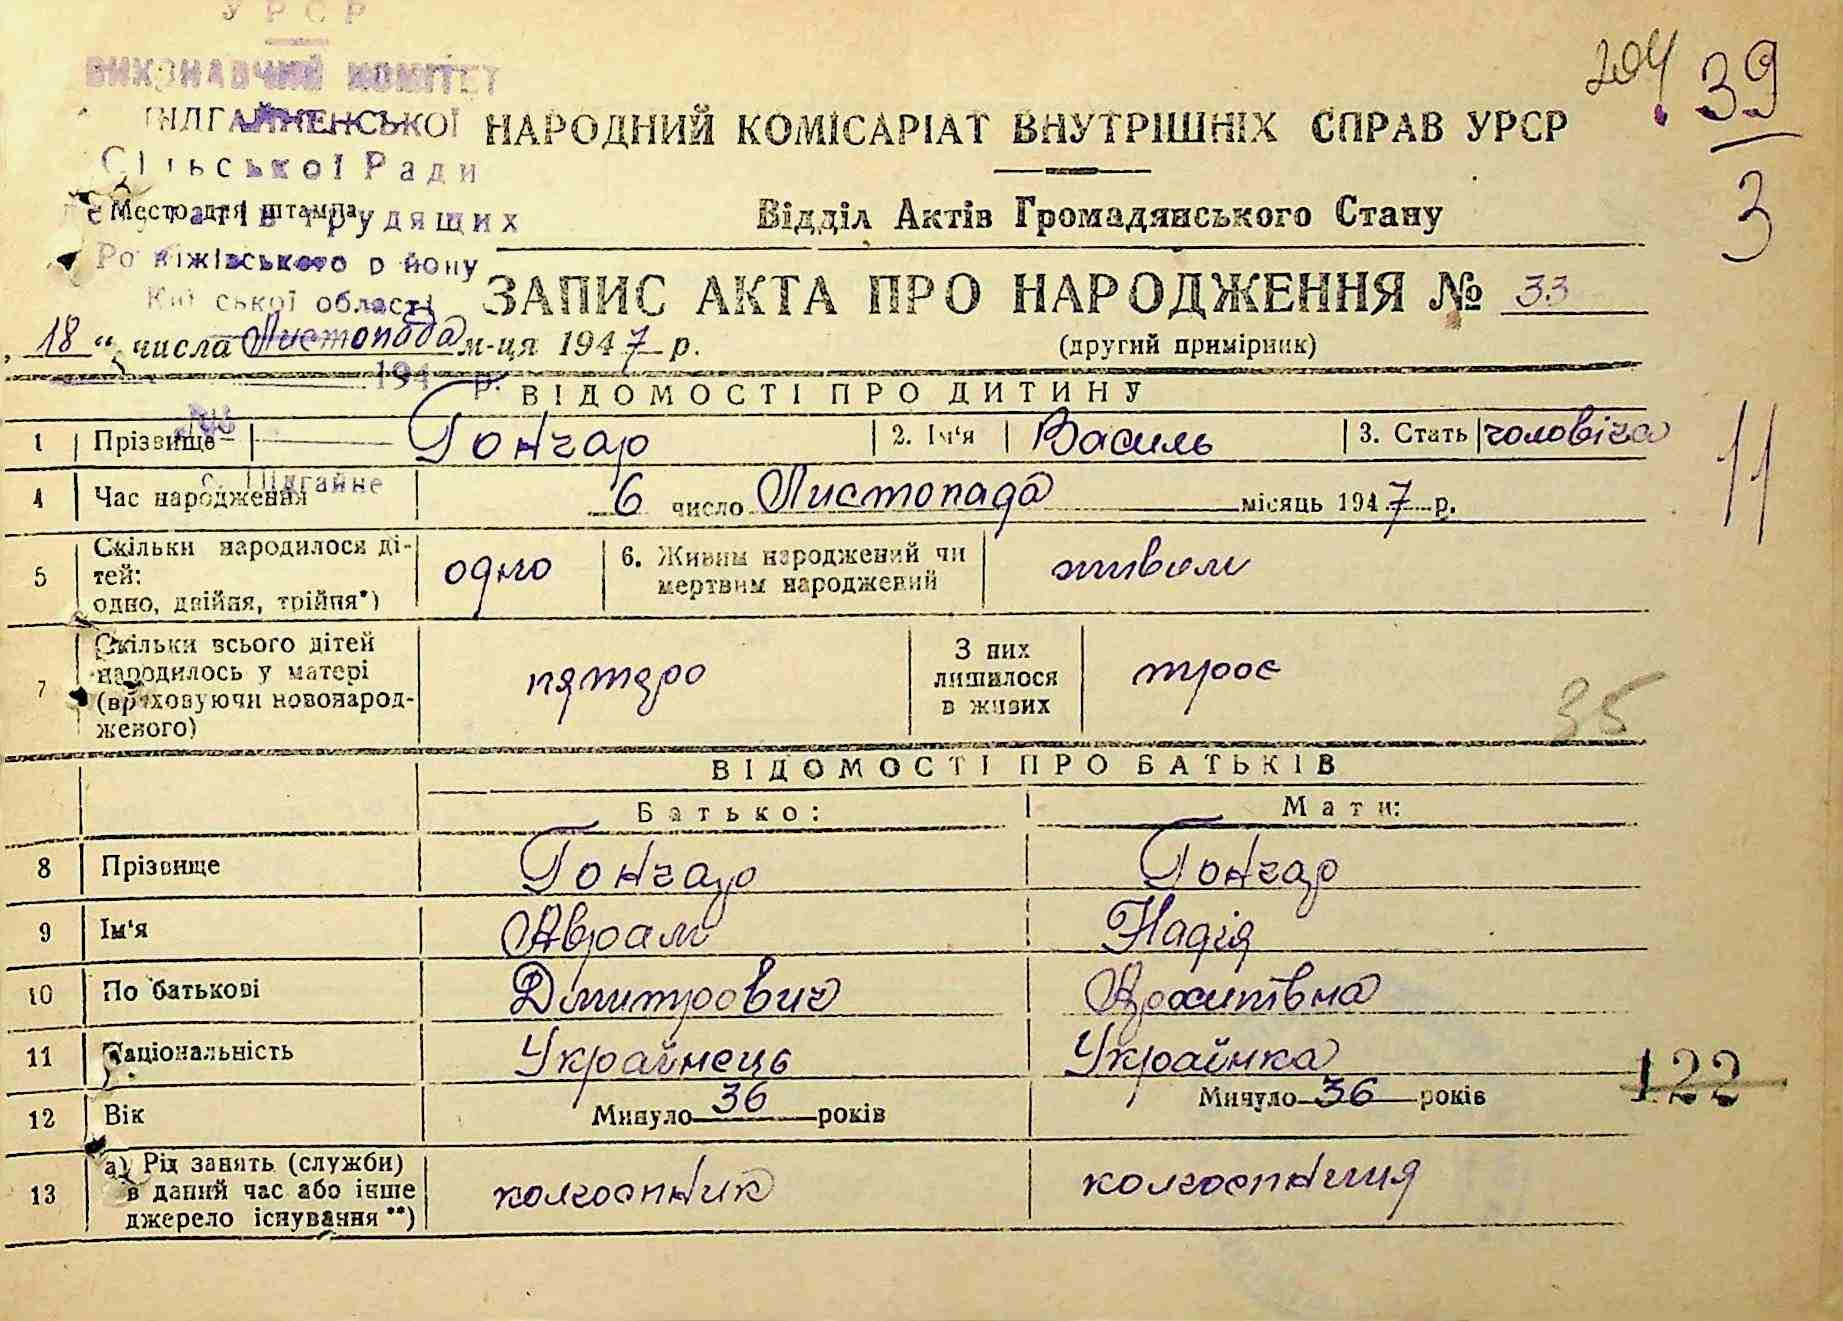 УРСР
ВИКОНАВЧИЙ КОМІТЕТ
ПІДГАЙНЕНСЬКОЇ
Сільської Ради
трудящих
району
області
194 р.
№
с. Підгайне
204
39
3
НАРОДНИЙ КОМІСАРІАТ ВНУТРІШНІХ СПРАВ УРСР
Место для штампа
Відділ Актів Громадянського Стану
ЗАПИС АКТА ПРО НАРОДЖЕННЯ № 33
„18“ числа Листопада м-ця 1947 р.
(другий примірник)
ВІДОМОСТІ ПРО ДИТИНУ
1 Прізвище Гончар 2. Ім'я Василь 3. Стать чоловіча
11
4 Час народження 6 число Листопада місяць 1947 р.
5 Скільки народилося ді-
тей:
одно, двійня, трійня*)
одно
6. Живим народжений чи
мертвим народжений
живим
7 Скільки всього дітей
народилось у матері
(враховуючи новонарод-
женого)
пятеро
З них
лишилося
в живих
троє
35
ВІДОМОСТІ ПРО БАТЬКІВ
Батько: Мати:
8 Прізвище Гончар Гончар
9 Ім'я Аврам Надія
10 По батькові Дмитрович Архипівна
11 Національність Українець Українка
122
12 Вік Минуло 36 років Минуло 36 років
13 а) Рід занять (служби)
в даний час або інше
джерело існування **)
колгоспник колгоспниця